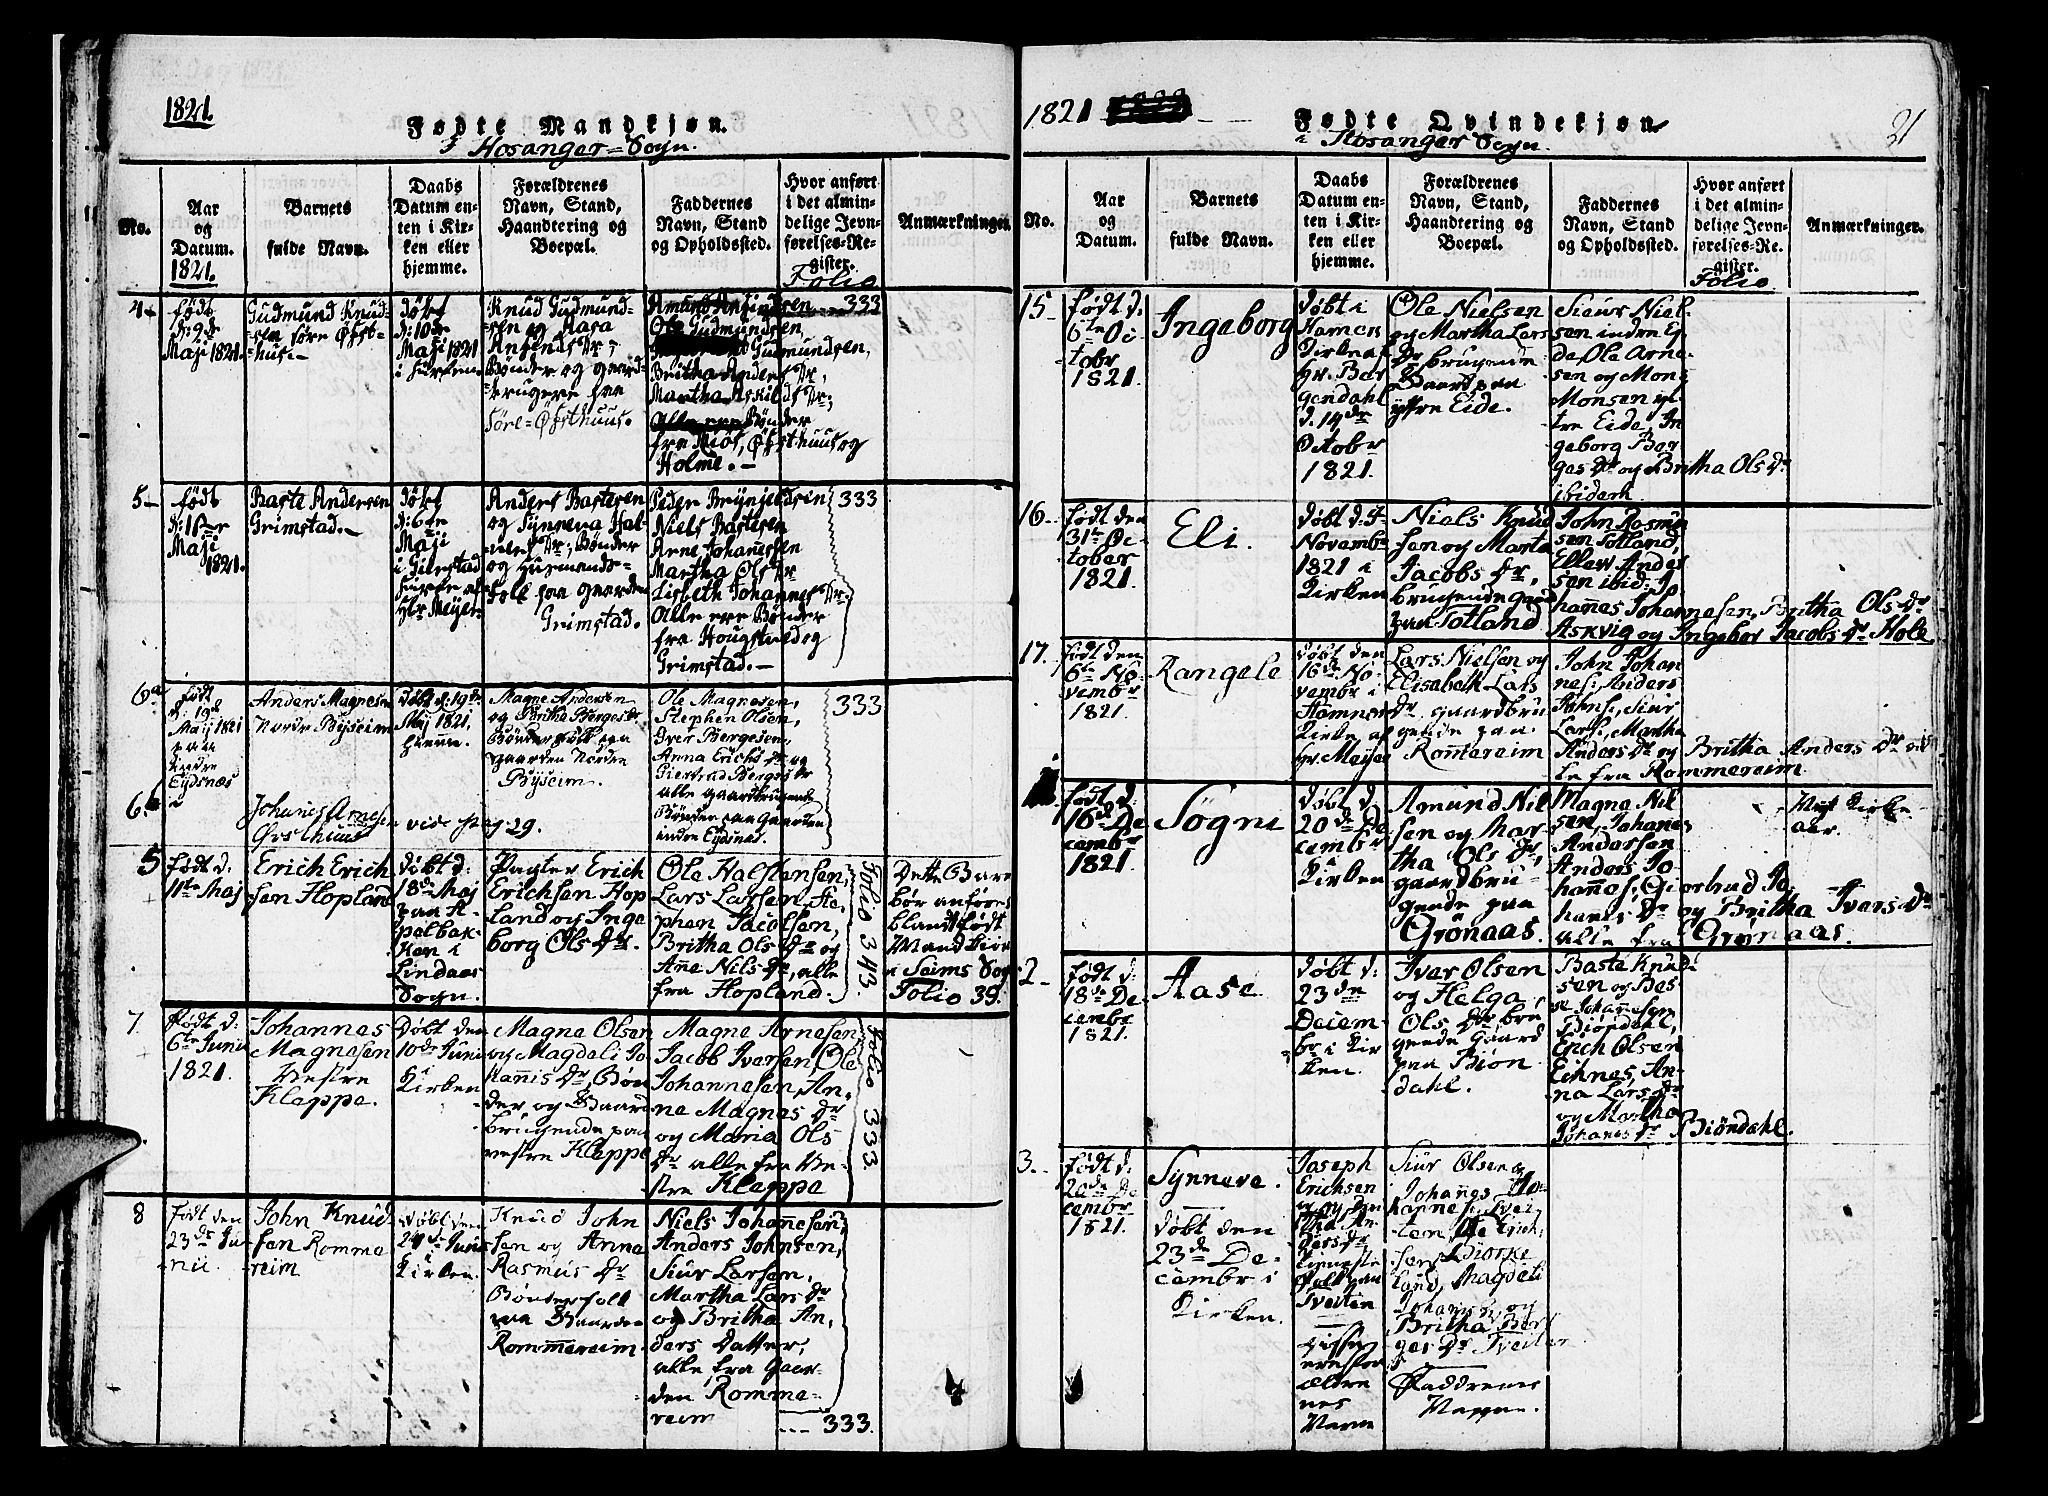 1821.
Fødte Mandkjøn.
i Hosanger=Sogn.
No.
Aar
og
Datum.
1821.
Barnets
fulde Navn.
Daabs
Datum en-
ten i Kir-
ken eller
hjemme.
Forældrenes
Navn, Stand,
Haandtering og
Boepæl.
Faddernes
Navn, Stand
og Opholdssted.
Hvor anført
i det almin-
delige Jevn-
førelses-Re-
gister.
Folio
Anmærkninger.
4
født
d: 9de
Maji 1821.
Gudmund Knud-
sen søre Øfst-
huus.
døbt
d: 10de
Maji 1821
i Kirken.
Knud Gudmund-
sen og Kara
Amundsdr;
Bønder og gaard-
brugere fra
Søre=Øfsthuus.
Ole Gudmundsen,
Gudmundsen,
Britha Andersdr,
Martha Askildsdr;
Alle ere Bønder
fra Øfsthuus og
Holme.
333
5
født
Maji
1821.
Baste Andersen
Grimstad.
døbt
d: 6te
Maji
i Grimstad
Kirke af
Hr. Meyer
Anders Bastesen
og Synneva Hal-
Bønder
og Husmands-
folk paa gaarden
Grimstad.
Peder Brynjeldsen
Niels Bastesen
Arne Johannesen
Martha Olsdr
Lisbeth Johannesdr.
Alle ere Bønder
fra Hougstad og
Grimstad.
333
6a
født
d. 19de
Maij 1821
paa
indre
Eydsnæs
Anders Magnesen
Nordre Bysheim
Døbt d. 19de
Maj 1821,
hiemme.
Magne Andersen
og Britha Bergesdr
Bønderfolk paa
gaarden Nordre
Bysheim.
Ole Magnesen,
Stephen Olsen,
Iver Bergesen,
Anna Erichsdr og
Giertrud Bergesdr
alle gaardbrugende
Bønder paa Gaarden
indre Eydsnæs.
333
6b
Johanes Arnesen
Øfsthuus
vide pag 29.
5
født d.
11te Maj
Erich Erich
sen Hopland
Døbt d:
18de Maj
paa
i
Lindaas
Sogn.
Pagter Erich
Erichsen Hop
land og Inge
borg Ols Dr.
Ole Halstensen,
Lars Larsen, Ste
phen Jacobsen,
Britha Ols Dr og
Anne Nils Dr, alle
fra Hopland.
Folio 343.
Dette Barn
bør anføres
blandt født
Mandkiøn
i Seims Sogn
Folio 39.
7.
født d:
6te Junii
1821.
Johannes
Magnesen
Vestre
Kleppe.
Døbt den
10de Junii
i
Kirken
Magne Olsen
og Magdeli Jo
hannis Dr, Bøn
der og Gaard
brugende paa
vestre Kleppe
Magne Arnesen,
Jacob Iversen, Ole
Johannesen, An
ne Magnes Dr
og Maria Ols
Dr alle fra Ve-
stre Kleppe
Folio 333.
8
født den
23de Ju-
nii.
John Knud
sen Romma
reim
døbt den
24de Junii
i
Kirken.
Knud John
sen og Anna
Rasmus Dr
Bønderfolk
paa Gaarden
Rommereim.
Niels Johannesen,
Anders Johnsen,
Siur Larsen,
Martha Lars Dr
og Britha An,
ders Datter,
alle fra Gaar-
den Romma-
reim
333.
1821
Fødte Qvindekjøn
i Hosanger Sogn.
21
No.
Aar
og
Datum.
Barnets
fulde Navn.
Daabs
Datum en-
ten i Kir-
ken eller
hjemme.
Forældrenes
Navn, Stand,
Haandtering og
Boepæl.
Faddernes
Navn, Stand
og Opholdssted.
Hvor anført
i det almin-
delige Jevn-
førelses-Re-
gister.
Folio
Anmærkninger.
15
født d:
6te Oc
tobr
1821.
Ingeborg
Døbt i
Hamers
Kirke af
Hr. Ber
gendahl
d. 14de
Octobr
1821.
Ole Nielsen
og Martha Lars
Dr brugende
Gaard paa
yttre Eide.
Siur Niel-
sen indre Ei-
de, Ole Arne-
sen og Mons
Monsen yt-
tre Eide, In
geborg Ber
ges Dr og Britha Ols Dr
ibidem.
16
født den
31te Oc
tober
1821.
Eli.
Døbt d. 4
Novembr
1821 i
Kirken
Niels Knud
sen og Marta
Jacobs Dr,
brugende gaard
paa Totland
John Rasmu
sen Totland,
Ellew Ander
sen ibid; Jo
hannes Johannesen, Britha Ols Dr
Askvig og Ingebor Jacobs Dr Hole
17.
født den
6te No
vembr
1821.
Rangele
Døbt den
16de No
vembr i
Hamers
Kirke af
Hr. Meyer
Lars Nielsen og
Elisabeth Lars
Dr gaardbru
gende paa
Rommereim
John Johan
nes: Anders
Johns, Siur
Lars:, Martha
Anders Dr og Britha Anders Dr al
le fra Rommereim
1
født d:
16de De
cembr
1821.
Søgni
Døbt d.
20de De
cembr
i
Kirken
Amund Nil
sen og Mar
tha Ols Dr,
gaardbru-
gende paa
Grönaas.
Magne Nil
sen, Johanes
Andersen
Anders Jo-
hannes: Giertrud Jo
hanis Dr og Britha Ivers Dr
alle fra Grønaas.
Nyt Kirke-
aar.
2
født d:
18de De
cembr
1821.
Aase
Døbt d:
23de
Decem-
br i Kir
ken.
Iver Olsen
og Helga
Ols Dr bru
gende Gaard
paa Biön
dahl.
Baste Knud
sen og Bas
te Johannesen
Biöndahl,
Erich Olsen
Eidnes, An-
na Lars Dr
og Martha
Johanes Dr Biöndahl.
3.
født d:
20de De
cembr
1821.
Synneve.
Døbt den
23de De-
cembr i
Kirken.
Joseph
Erichsen
An-
ders Dr
folk paa
Tveiten
Disse
ere for
ældre
nes
Navne
Siur Olsen og
Johannes Jo-
hannes: Tvei-
ten, Ole Erich-
sen Biørke
land, Magdeli
Johans Dr og
Britha Ber
ges Dr Tveiten
Faddrenes
Navne.